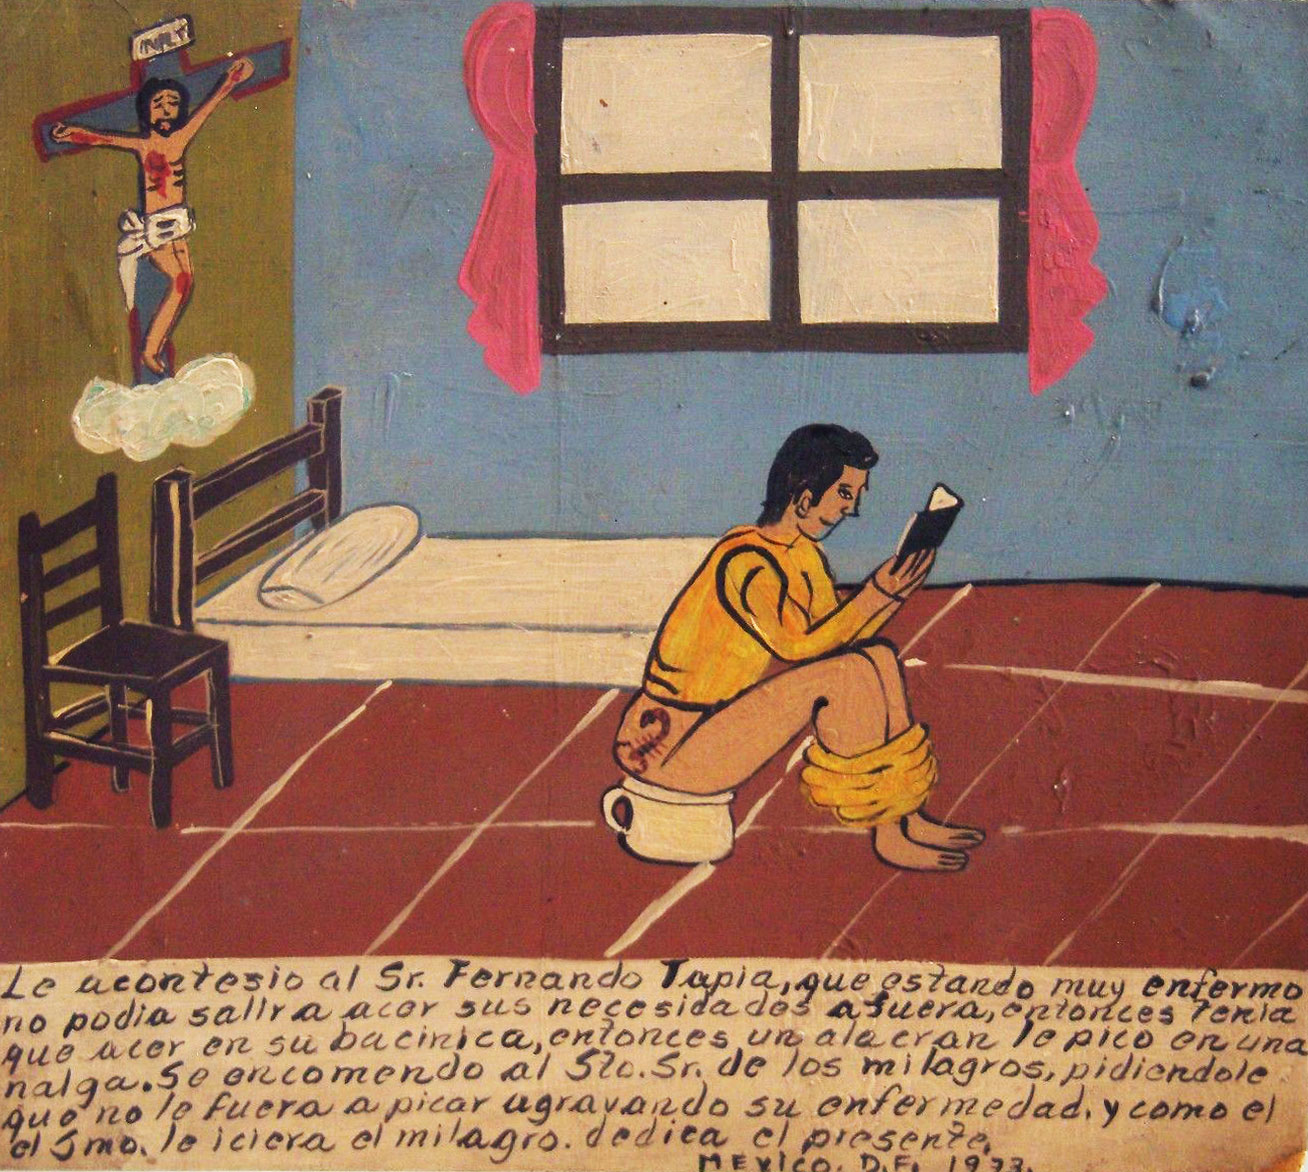 INRI
Le acontesio al Sr. Fernando Tapia, que estando muy enfermo
no podia salir a acer sus necesidades afuera, entonces tenia
que acer en su bacinica, entonces un alacran le pico en una
nalga. Se encomendo al Sto. Sr. de los milagros, pidiendole
que no le fuera a picar agravando su enfermedad. y como el
el Smo. le iciera el milagro. dedica el presente.
MEXICO. D.F. 1973.